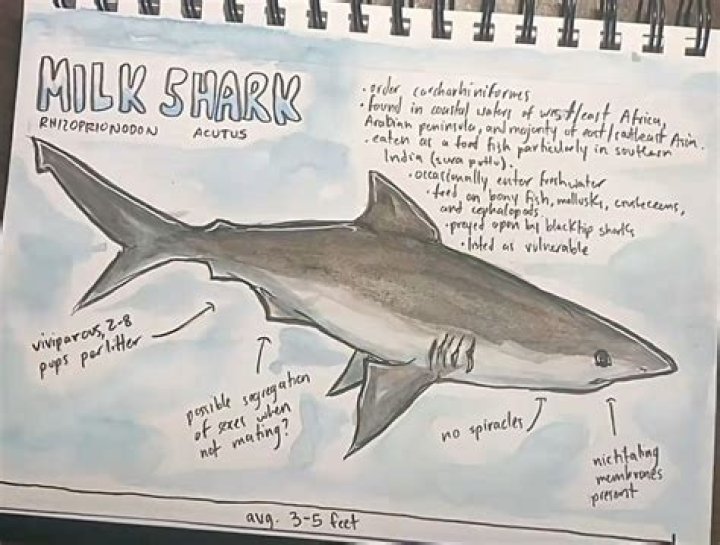 MILK SHARK
RHIZOPRIONODON ACUTUS
• order carcharhiniformes
• found in coastal waters of west/east Africa,
Arabian peninsula, and majority of east/southeast Asia.
• eaten as a food fish particularly in southern
India (sura puttu).
• occasionally enter freshwater
• feed on bony fish, mollusks, crustaceans,
and cephalopods
• preyed upon by blacktip sharks
• listed as vulnerable
viviparous, 2-8
pups per litter
possible segregation
of sexes when
not mating?
no spiracles
nictitating
membranes
present
avg. 3-5 feet